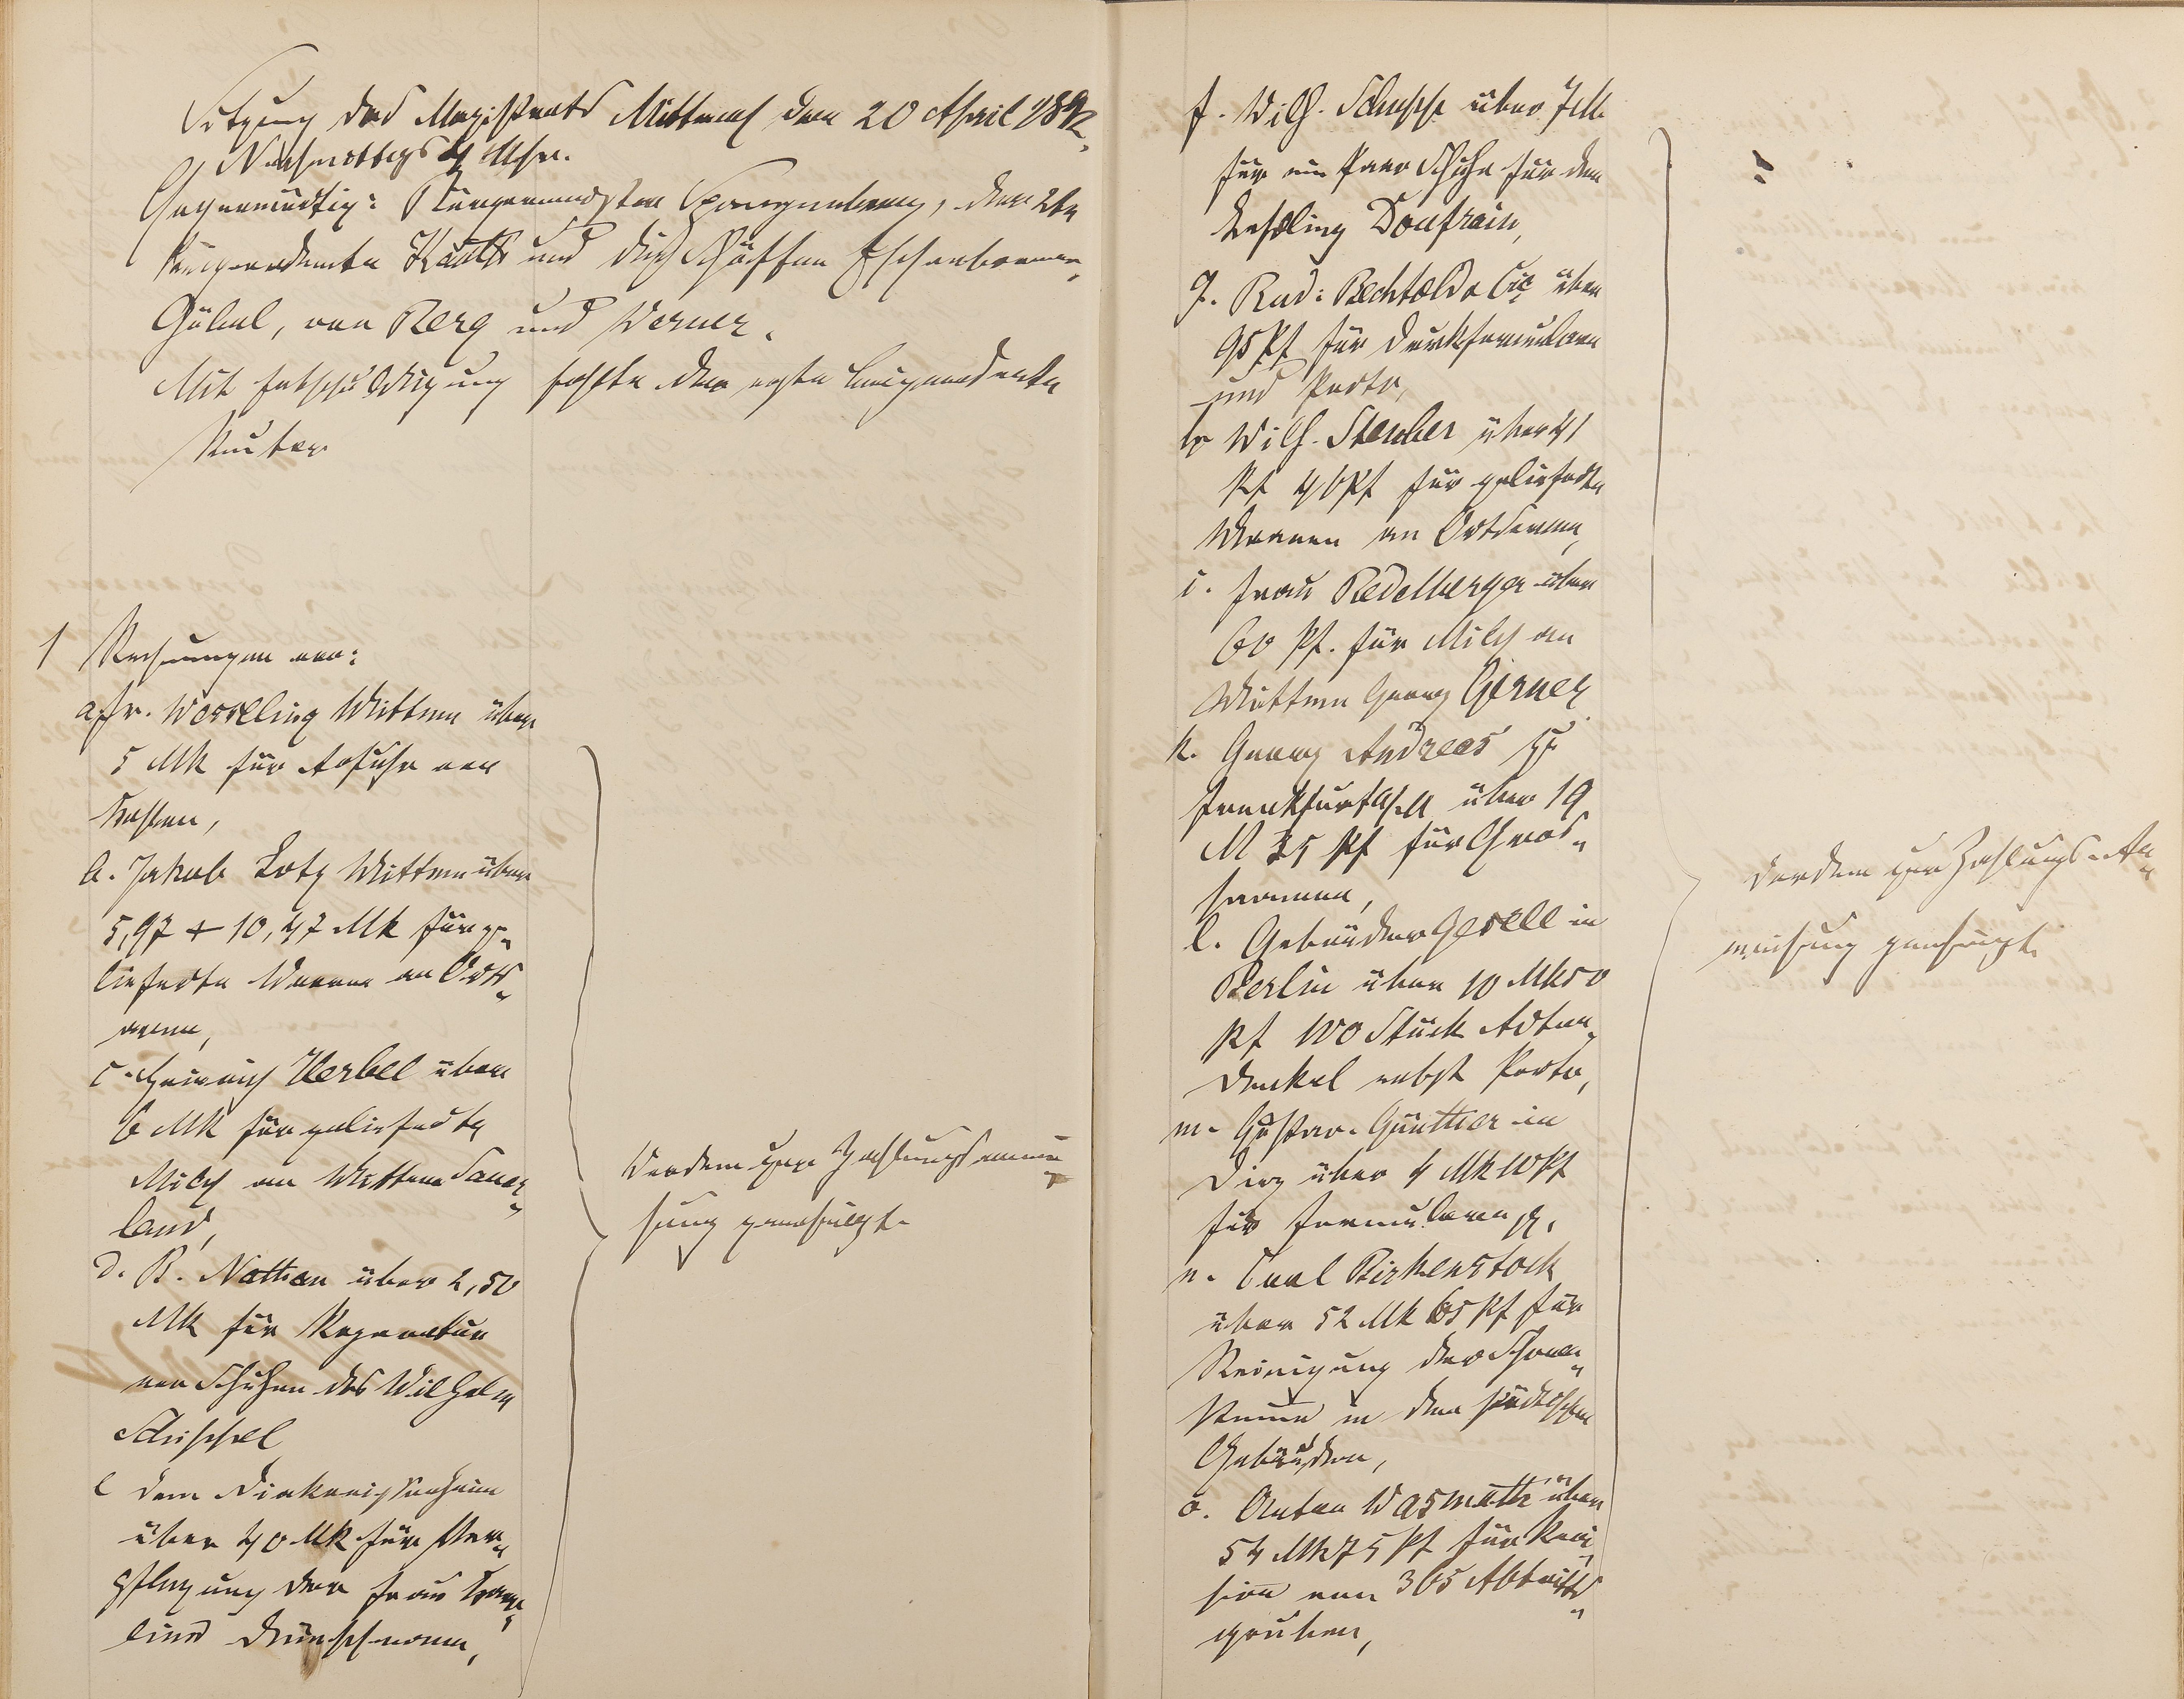 Sitzung des Magistrats Mittwoch den 20 April 1892,
Nachmittags 4 Uhr.
Gegenwärtig: Bürgermeister Spangenberg, der 2te
Beigeordnete Kauth und die Schöffen Eschenbrenner,
Göbel, von Berg und Werner.
Mit Entschuldigung fehlte der erste Beigeordnete
Reuter
1 Rechnungen von:
a. Fr. Wesseling Wittwe über
5 Mk für Abfuhr von
b. Jakob Lotz Wittwe über
5,97 + 10,47 Mk für ge„
lieferte Waaren an Orts„
arme,
c. Heinrich Herbel über
6 Mk für gelieferte
Milch an Wittwe Sauer„
land,
d. B. Nathan über 2,50
Mk für Reparatur
von Schuhen des Wilhelm
Schissel
e dem Diakonissenheim
über 40 Mk für Ver„
pflegung der Frau
Werden zur Zahlungsanwei„
sung genehmigt.
f. Wilh. Schupp über 7 M.
für ein Paar Schuhe für den
Lehrling Donfrain,
g. Rud: Bechtold & Cie über
95 Pf für Druckformulare
und Porto,
h Wilh. Stember über 41
Mk 46 Pf für gelieferte
Waaren an Ortsarme,
i. Frau Bedelberger über
60 Pf. für Milch an
Wittwe Georg Gerner
k. Georg Andreas zu
Frankfurt a/M über 19
M 35 Pf für Gras„
saamen,
l. Gebrüder Gesell in
Berlin über 10 Mk 50
Pf 100 Stück Akten„
deckel nebst Porto,
m. Gustav Günther in
Diez über 4 Mk 10 Pf
für Formulare pp.
n. Carl Birkenstock
über 52 Mk 65 Pf für
Reinigung der Schorn„
steine in den städtischen
Gebäuden,
o. Anton Wasmuth über
54 Mk 75 Pf für Revi„
sion von 365 Abtritts„
gruben,
Werden zur Zahlungs-An„
weisung genehmigt.